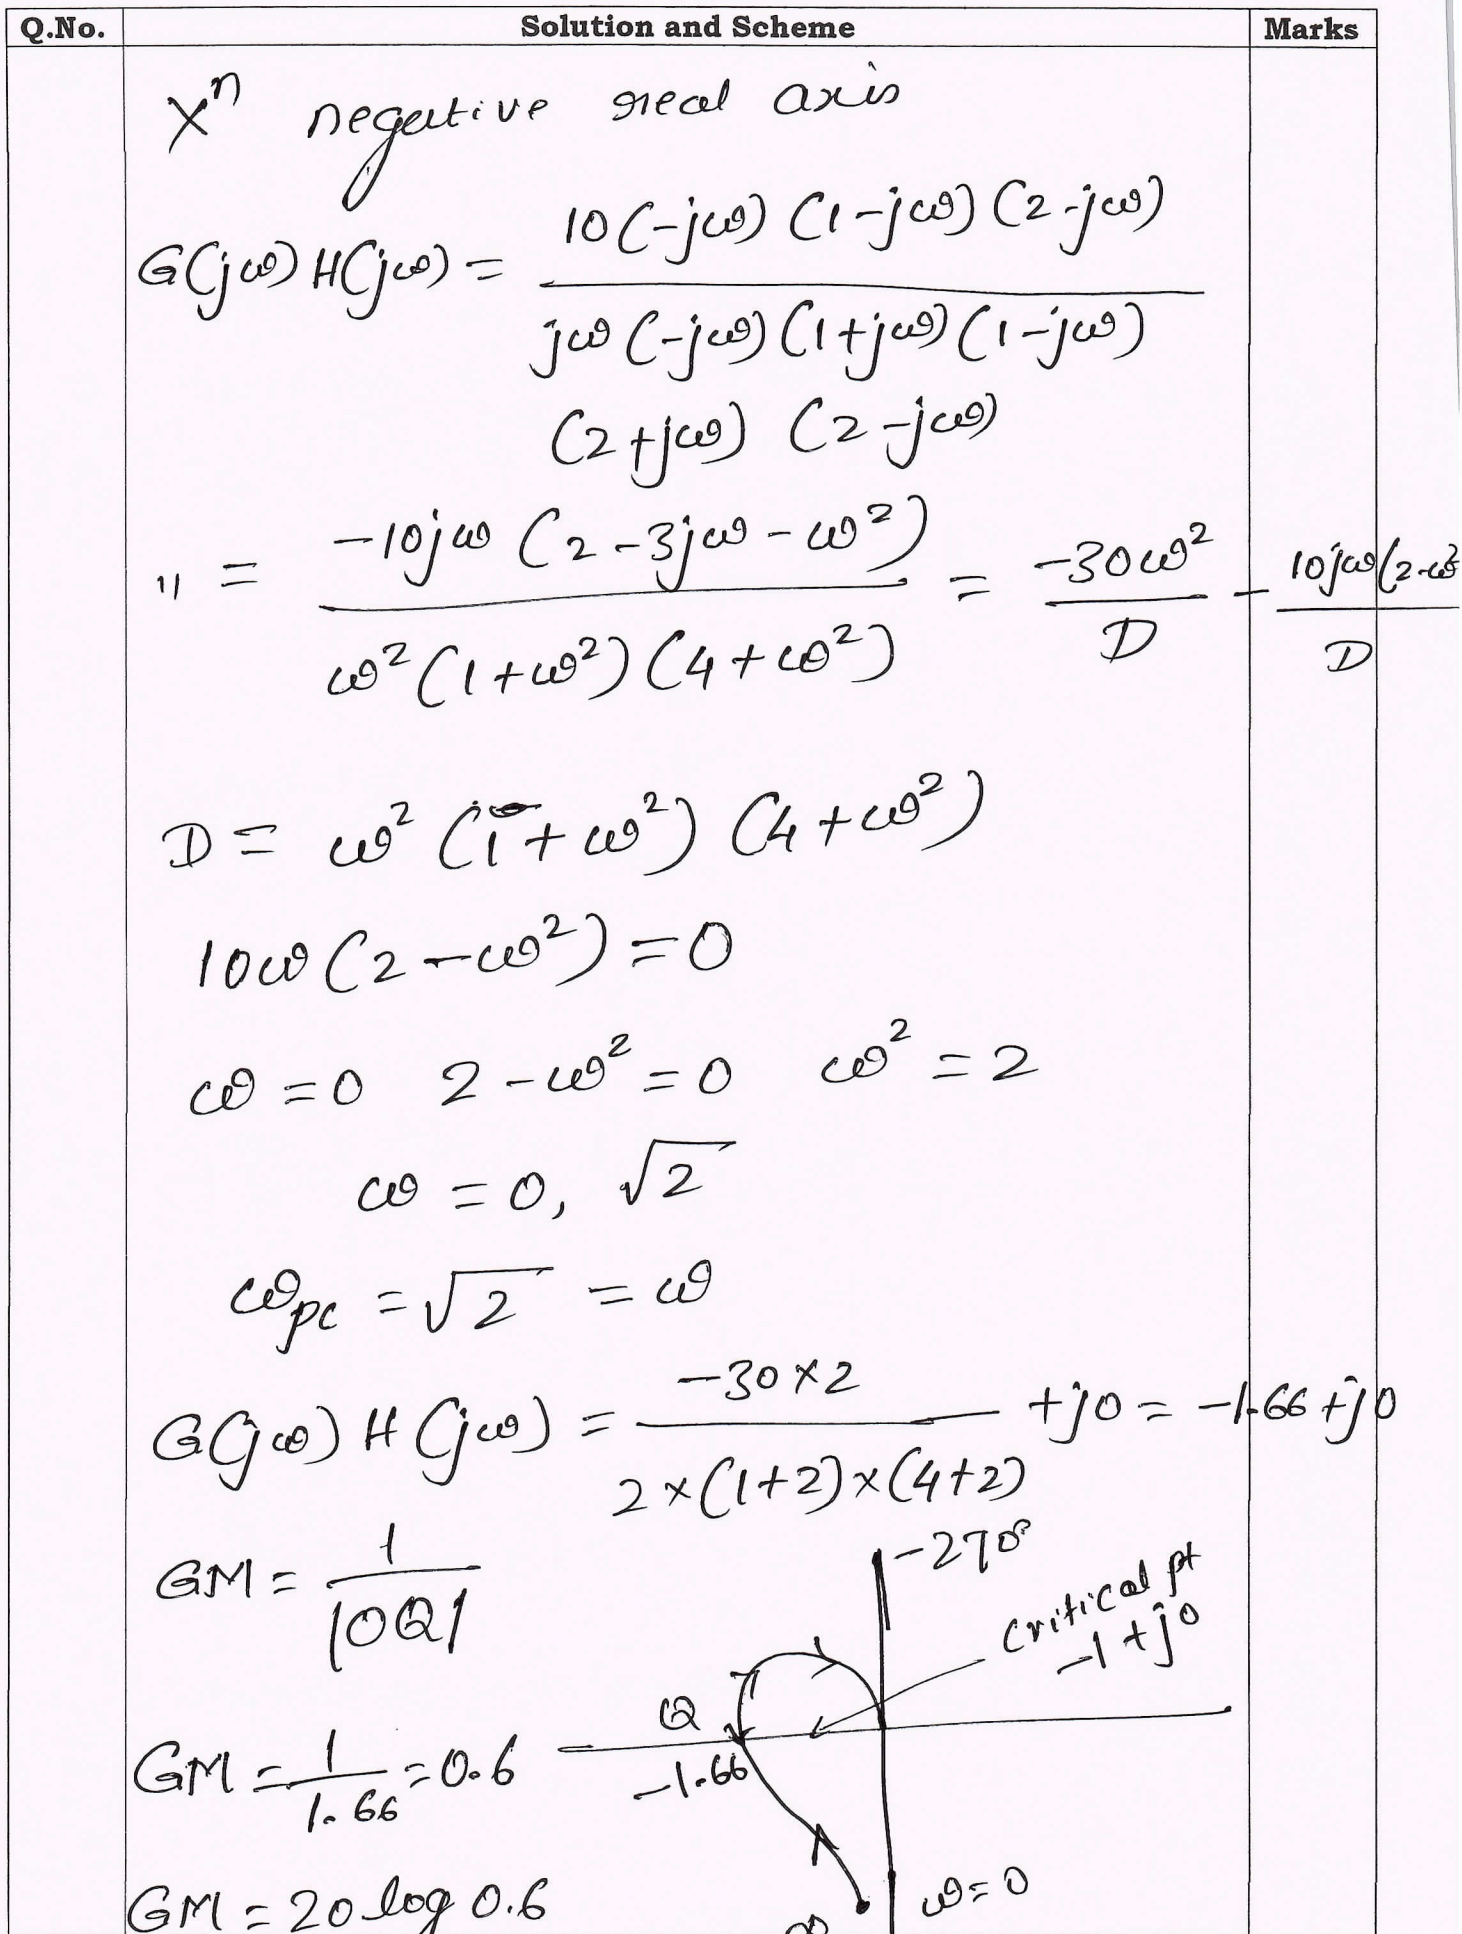 Q.No. Solution and Scheme Marks
Xⁿ negative real axis
G(jω) H(jω) = 10(-jω) (1-jω) (2-jω)
jω (-jω) (1+jω) (1-jω)
(2+jω) (2-jω)
" = -10jω (2-3jω-ω²) / ω² (1+ω²) (4+ω²) = -30ω² / D - 10jω(2-ω² / D
D = ω² (1+ω²) (4+ω²)
10ω (2-ω²) = 0
ω = 0 2-ω² = 0 ω² = 2
ω = 0, √2
ωpc = √2 = ω
G(jω) H(jω) = -30×2 / 2×(1+2)×(4+2) + j0 = -1.66 + j0
GM = 1 / |OQ|
-270°
critical pt
-1 + j0
Q
-1.66
GM = 1 / 1.66 = 0.6
ω = 0
GM = 20 log 0.6
∞